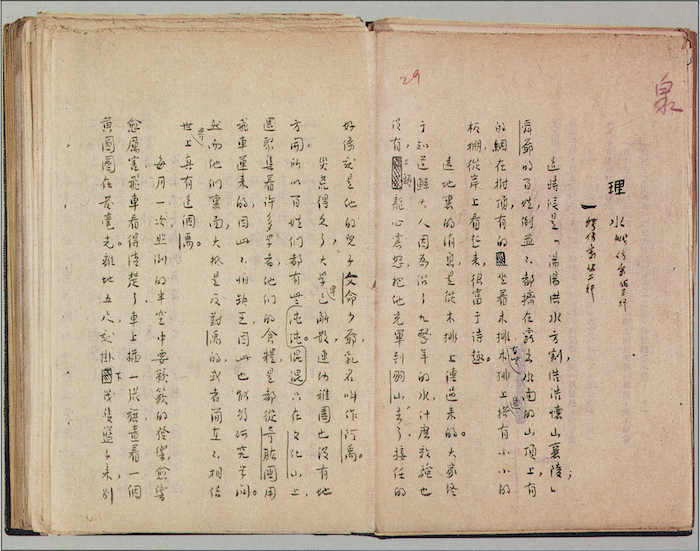 泉
29
理水
一
這時候是“湯湯洪水方割,浩浩懷山襄陵”;
舜爺的百姓,倒並不都擠在露出水面的山頂上,有
的綑在樹頂,有的坐着木排,有些木排上搭有小小的
板棚,從岸上看起來,很富于詩趣。
遠地裏的消息,是從木排上傳過來的。大家終
于知道鯀大人因為治了九整年的水,什麽效驗也
沒有,上頭龍心震怒,把他充軍到羽山去了,接任的
好像就是他的兒子文命少爺,乳名叫作阿禹。
災荒得久了,大學早已解散,連幼稚園也沒有地
方開,所以百姓們都有些沌沌混混。只在文化山上,
還聚集着許多學者,他們的食糧,是都從奇肱國用
飛車運來的,因此不怕缺乏,因此也能夠研究學問。
然而他們裏面,大抵是反對禹的,或者簡直不相信
世上真有這個禹。
每月一次,照例的半空中要簌簌的發響,愈響
愈厲害,飛車看得清楚了,車上插一張旗,畫着一個
黃圓圈在發毫光。離地五尺,就掛下幾隻籃子來,別